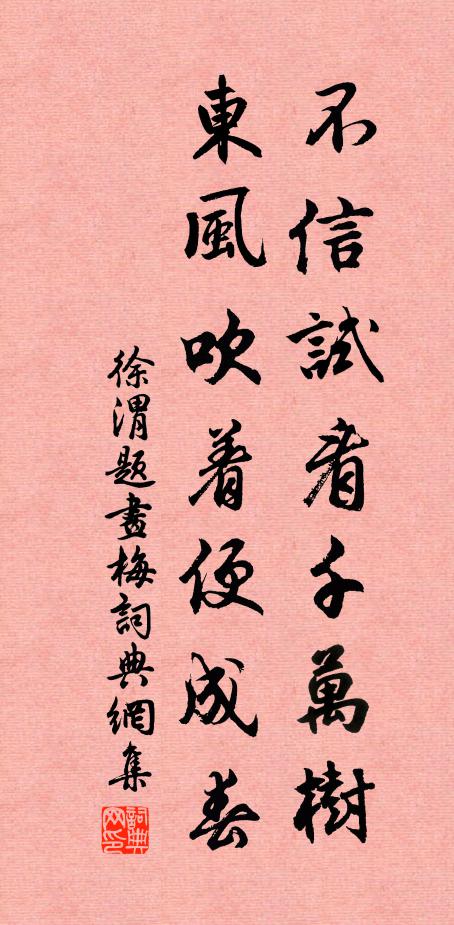 不信試看千萬樹
東風吹着便成春
徐渭題畫梅詞典網集
詞典网印